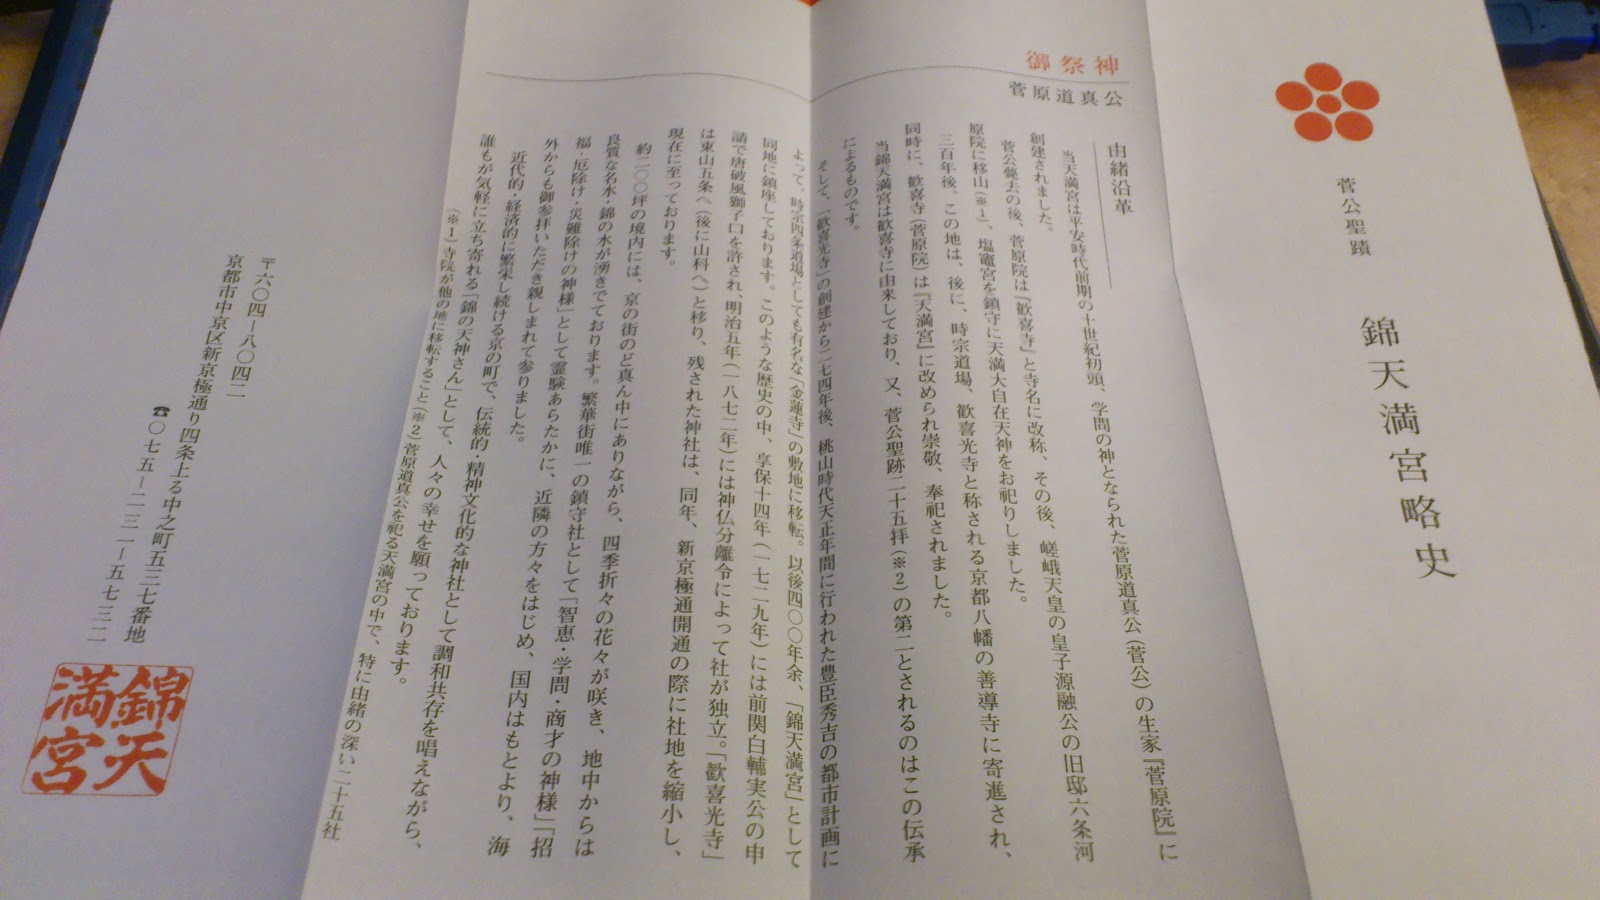 菅公聖蹟　錦天満宮略史
御祭神
菅原道真公
由緒沿革
当天満宮は平安時代前期の十世紀初頭、学問の神となられた菅原道真公（菅公）の生家『菅原院』に
創建されました。
菅公薨去の後、菅原院は『歓喜寺』と寺名に改称、その後、嵯峨天皇の皇子源融公の旧邸六条河
原院に移山（※1）、塩竈宮を鎮守に天満大自在天神をお祀りしました。
三百年後、この地は、後に、時宗道場、歓喜光寺と称される京都八幡の善導寺に寄進され、
同時に、歓喜寺（菅原院）は『天満宮』に改められ崇敬、奉祀されました。
当錦天満宮は歓喜寺に由来しており、又、菅公聖跡二十五拝（※2）の第二とされるのはこの伝承
によるものです。
そして、「歓喜光寺」の創建から二七四年後、桃山時代天正年間に行われた豊臣秀吉の都市計画に
よって、時宗四条道場としても有名な「金蓮寺」の敷地に移転。以後四〇〇年余、「錦天満宮」として
同地に鎮座しております。このような歴史の中、享保十四年（一七二九年）には前関白輔実公の申
請で唐破風獅子口を許され、明治五年（一八七二年）には神仏分離令によって社が独立。「歓喜光寺」
は東山五条へ（後に山科へ）と移り、残された神社は、同年、新京極通開通の際に社地を縮小し、
現在に至っております。
約二〇〇坪の境内には、京の街のど真ん中にありながら、四季折々の花々が咲き、地中からは
良質な名水・錦の水が湧きでております。繁華街唯一の鎮守社として「智恵・学問・商才の神様」「招
福・厄除け・災難除けの神様」として霊験あらたかに、近隣の方々をはじめ、国内はもとより、海
外からも御参拝いただき親しまれて参りました。
近代的・経済的に繁栄し続ける京の町で、伝統的・精神文化的な神社として調和共存を唱えながら、
誰もが気軽に立ち寄れる「錦の天神さん」として、人々の幸せを願っております。
（※1）寺院が他の地に移転すること（※2）菅原道真公を祀る天満宮の中で、特に由緒の深い二十五社
〒六〇四－八〇四二
京都市中京区新京極通り四条上る中之町五三七番地
☎〇七五－二三一－五七三二
錦天
満宮